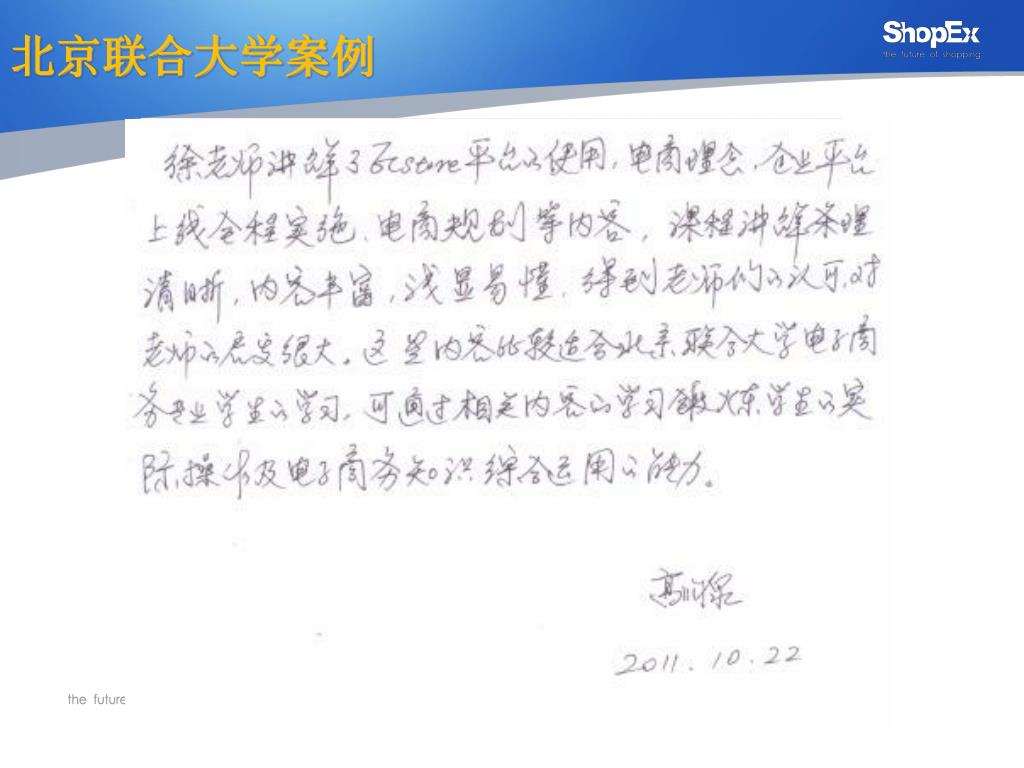 北京联合大学案例
ShopEx
the future of shopping
徐老师讲解了Ecstore平台的使用,电商理念,企业平台
上线全程实施、电商规划等内容,课程讲解条理
清晰,内容丰富,浅显易懂,得到老师们的认可,对
老师的启发很大。这些内容比较适合北京联合大学电子商
务专业学生的学习,可通过相关内容的学习锻炼学生的实
际操作及电子商务知识综合运用的能力。
高
2011.10.22
the future